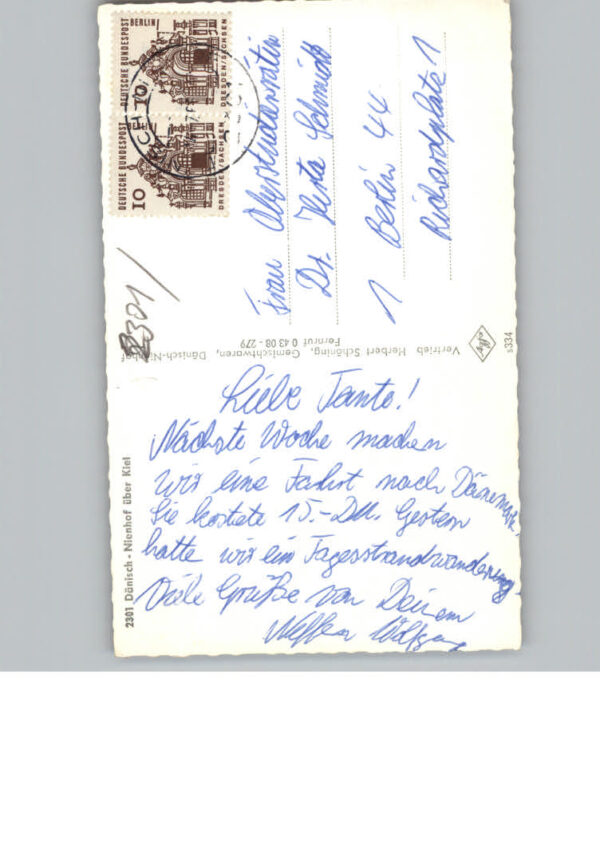 Liebe Tante!
Nächste Woche machen
wir eine Fahrt nach Dänemark.
Sie kostete 15.- DM. Gestern
hatte wir ein Tagesstrandwanderung
Viele Grüße von Deinem
Neffen Wolfgang
Frau Oberstudienrätin
Dr. Herta Schmidt
1 Berlin 44
Richardplatz 1
2301/
2301 Dänisch - Nienhof über Kiel
Vertrieb Herbert Schöning, Gemischtwaren, Dänisch-Nienhof
Fernruf 0 43 08 - 279
Agfa
s334
DEUTSCHE BUNDESPOST
BERLIN
10
DRESDEN/SACHSEN
DEUTSCHE BUNDESPOST
BERLIN
10
DRESDEN/SACHSEN